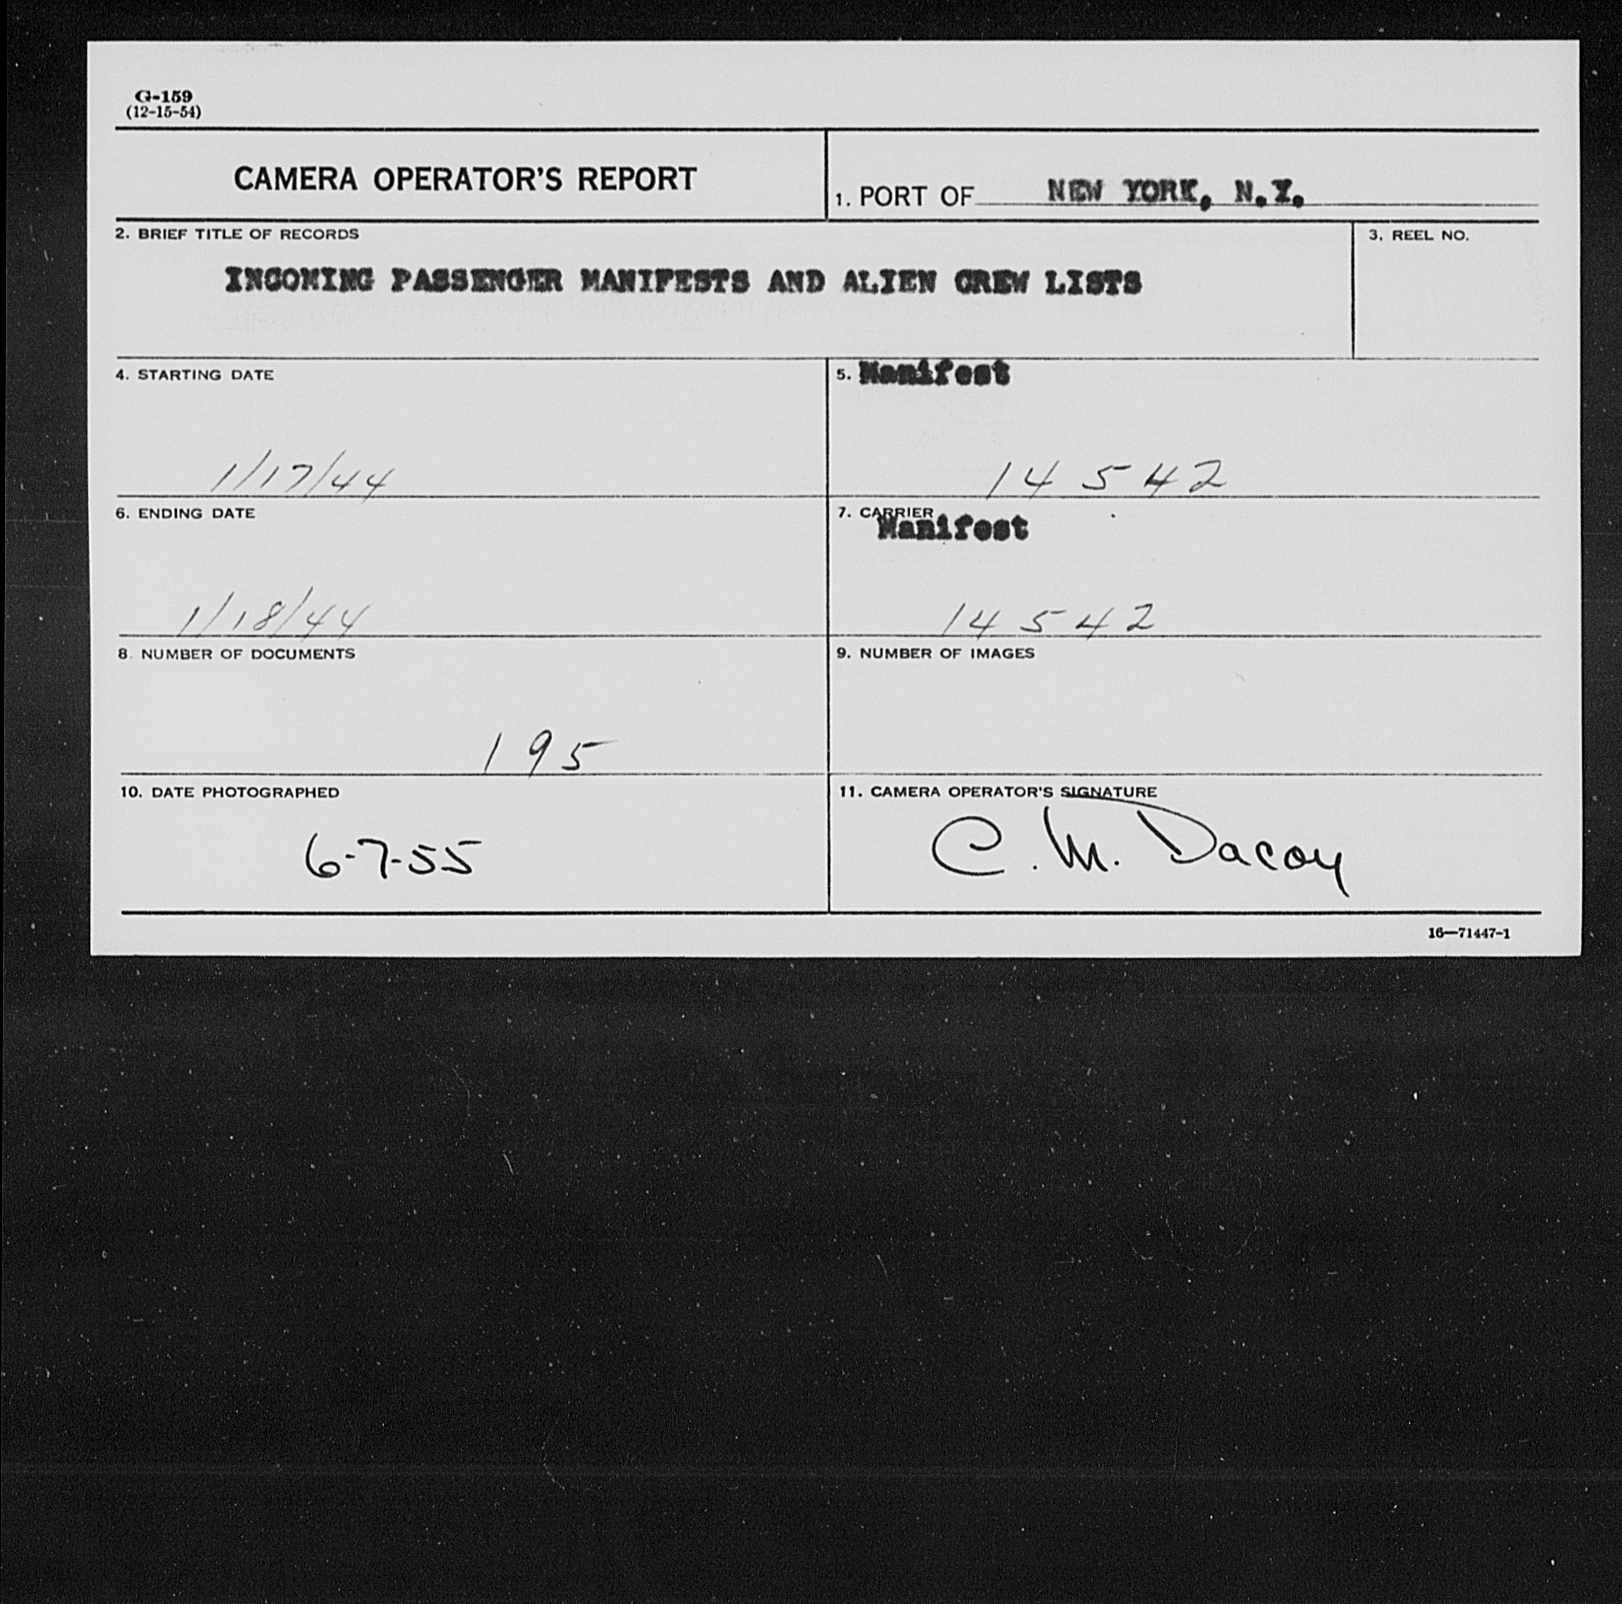 G-159
(12-15-54)
CAMERA OPERATOR'S REPORT
1. PORT OF NEW YORK, N.Y.
2. BRIEF TITLE OF RECORDS
3. REEL NO.
INCOMING PASSENGER MANIFESTS AND ALIEN CREW LISTS
4. STARTING DATE
5. Manifest
1/17/44
14542
6. ENDING DATE
7. CARRIER
Manifest
1/18/44
14542
8. NUMBER OF DOCUMENTS
9. NUMBER OF IMAGES
195
10. DATE PHOTOGRAPHED
11. CAMERA OPERATOR'S SIGNATURE
6-7-55
C. M. Dacoy
16—71447-1